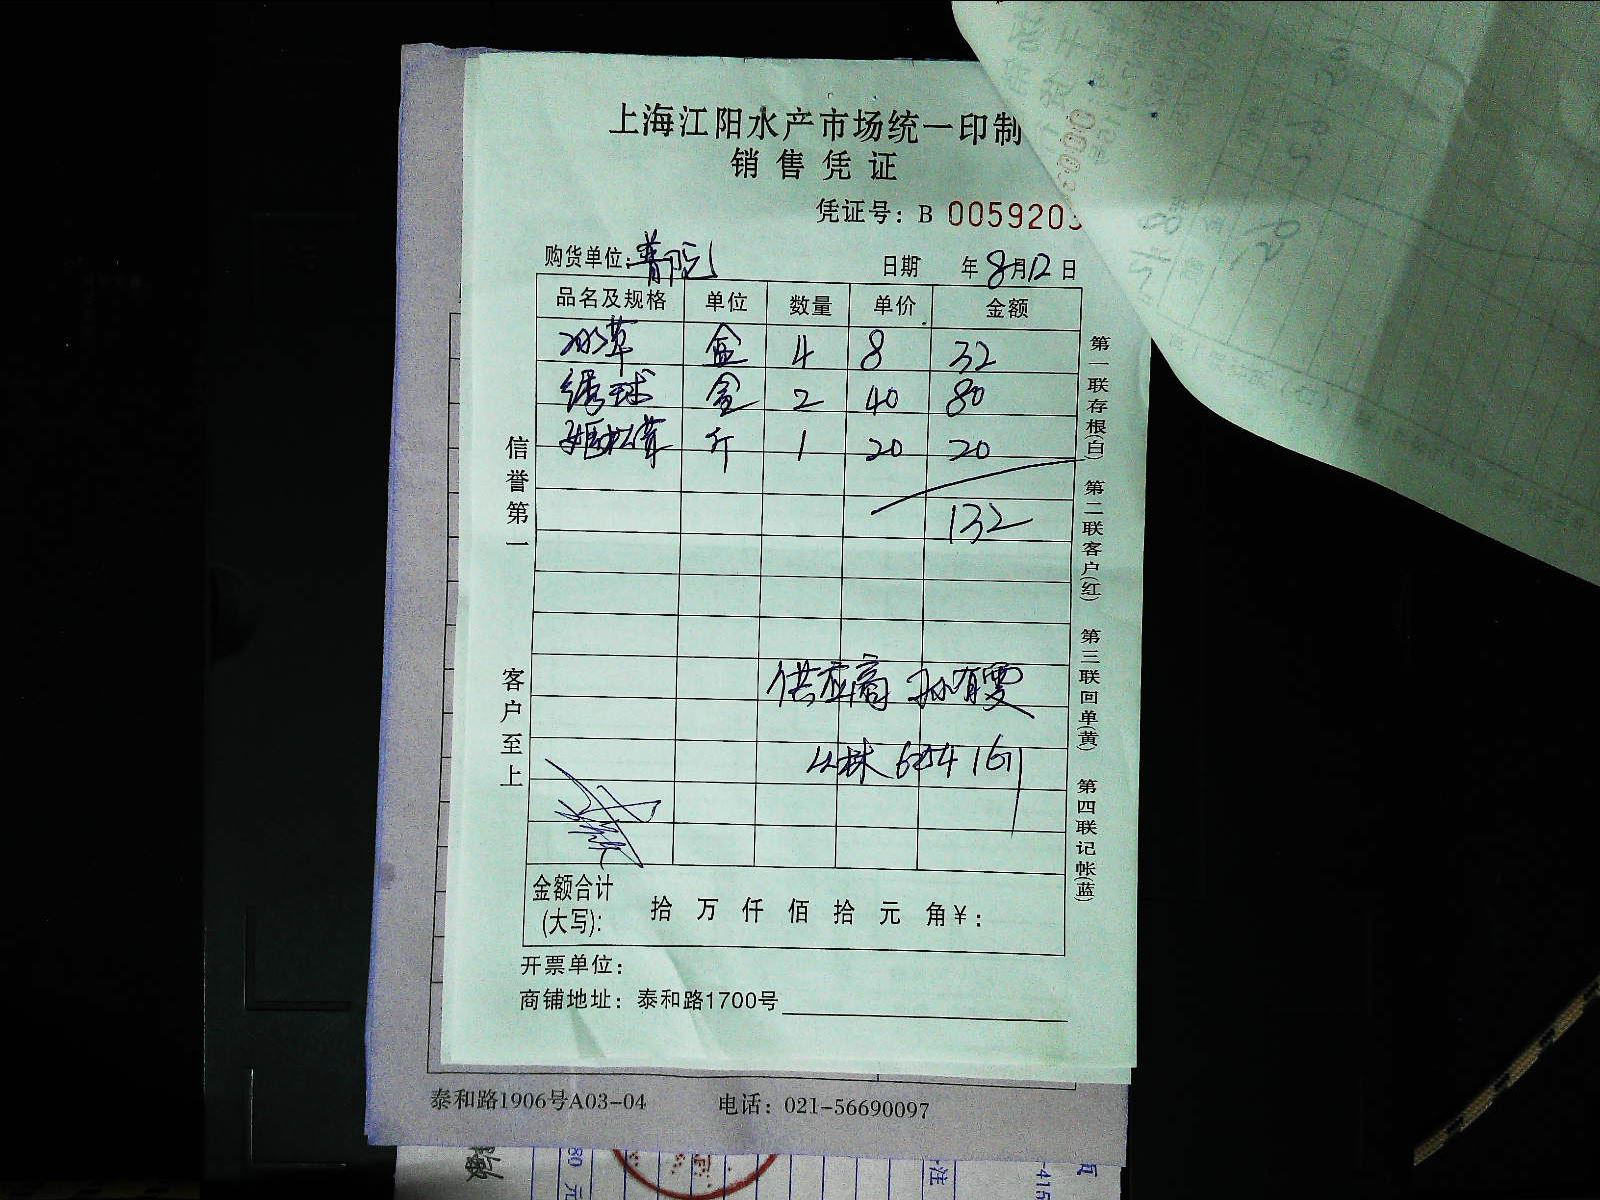 上海江阳水产市场统一印制
销售凭证
凭证号：B 0059203
购货单位：
日期 年8月12日
品名及规格 单位 数量 单价 金额
冰草 盒 4 8 32
绣球 盒 2 40 80
姬松茸 斤 1 20 20
132
供应商 孙有雯
信誉第一
客户至上
第一联存根(白) 第二联客户(红) 第三联回单(黄) 第四联记帐(蓝)
金额合计
(大写)： 拾 万 仟 佰 拾 元 角 ¥：
开票单位：
商铺地址：泰和路1700号
泰和路1906号A03-04 电话：021-56690097